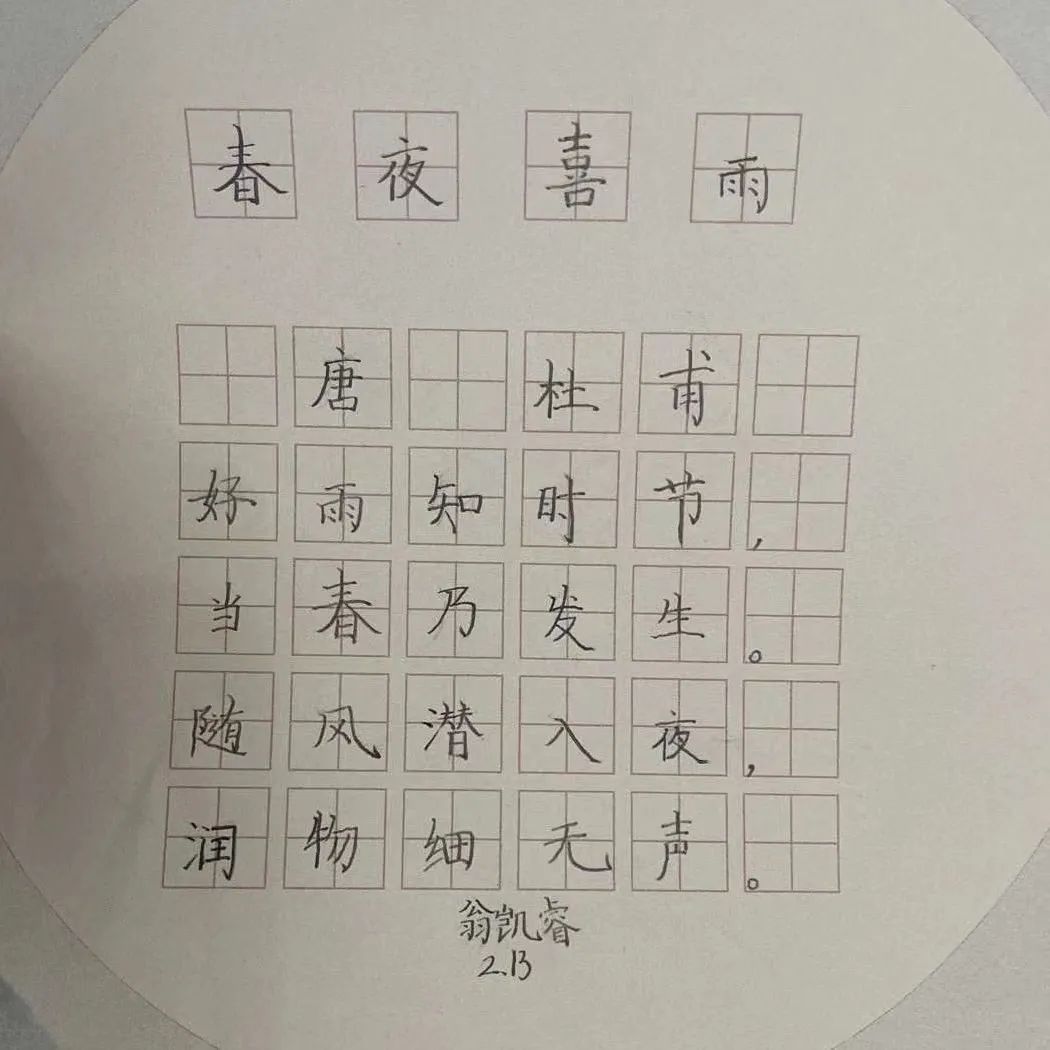 春夜喜雨
唐 杜甫
好雨知时节，
当春乃发生。
随风潜入夜，
润物细无声。
翁凯睿
2.13